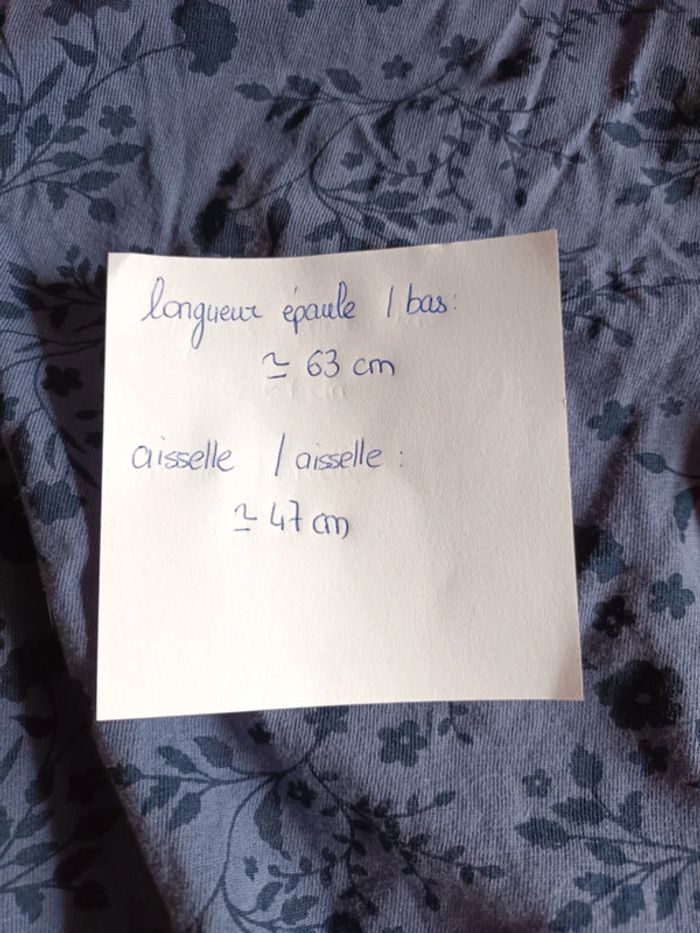 longueur épaule / bas :
≃ 63 cm
aisselle / aisselle :
≃ 47 cm